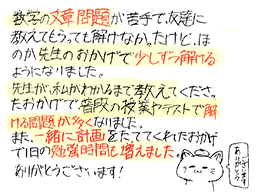 数学の文章問題が苦手で、友達に
教えてもらっても解けなかったけど、ほ
のか先生のおかげで少しずつ解ける
ようになりました。
先生が、私がわかるまで教えてくださっ
たおかげで普段の授業やテストで解
ける問題が多くなりました。
また、一緒に計画をたててくれたおかげ
で1日の勉強時間も増えました。
ありがとうございます!
ありがとう
ございます